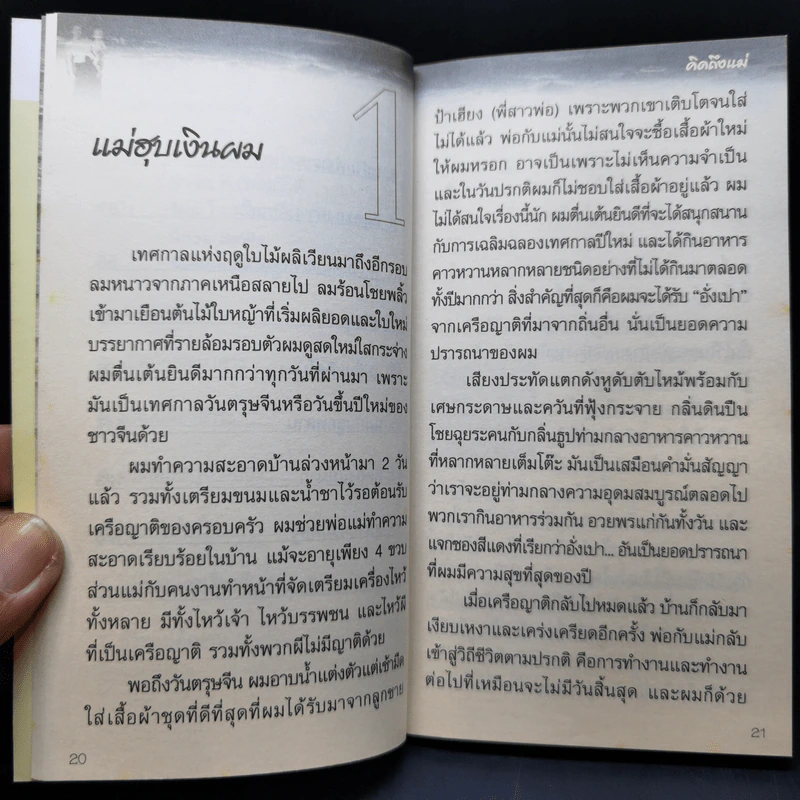 1
แม่ฮุบเงินผม
เทศกาลแห่งฤดูใบไม้ผลิเวียนมาถึงอีกรอบ
ลมหนาวจากภาคเหนือสลายไป ลมร้อนโชยพลิ้ว
เข้ามาเยือนต้นไม้ใบหญ้าที่เริ่มผลิยอดและใบใหม่
บรรยากาศที่รายล้อมรอบตัวผมดูสดใหม่ใสกระจ่าง
ผมตื่นเต้นยินดีมากกว่าทุกวันที่ผ่านมา เพราะ
มันเป็นเทศกาลวันตรุษจีนหรือวันขึ้นปีใหม่ของ
ชาวจีนด้วย
ผมทำความสะอาดบ้านล่วงหน้ามา 2 วัน
แล้ว รวมทั้งเตรียมขนมและน้ำชาไว้รอต้อนรับ
เครือญาติของครอบครัว ผมช่วยพ่อแม่ทำความ
สะอาดเรียบร้อยในบ้าน แม้จะอายุเพียง 4 ขวบ
ส่วนแม่กับคนงานทำหน้าที่จัดเตรียมเครื่องไหว้
ทั้งหลาย มีทั้งไหว้เจ้า ไหว้บรรพชน และไหว้ผี
ที่เป็นเครือญาติ รวมทั้งพวกผีไม่มีญาติด้วย
พอถึงวันตรุษจีน ผมอาบน้ำแต่งตัวแต่เช้ามืด
ใส่เสื้อผ้าชุดที่ดีที่สุดที่ผมได้รับมาจากลูกชาย
20
คิดถึงแม่
ป้าเฮียง (พี่สาวพ่อ) เพราะพวกเขาเติบโตจนใส่
ไม่ได้แล้ว พ่อกับแม่นั้นไม่สนใจจะซื้อเสื้อผ้าใหม่
ให้ผมหรอก อาจเป็นเพราะไม่เห็นความจำเป็น
และในวันปรกติผมก็ไม่ชอบใส่เสื้อผ้าอยู่แล้ว ผม
ไม่ได้สนใจเรื่องนี้นัก ผมตื่นเต้นยินดีที่จะได้สนุกสนาน
กับการเฉลิมฉลองเทศกาลปีใหม่ และได้กินอาหาร
คาวหวานหลากหลายชนิดอย่างที่ไม่ได้กินมาตลอด
ทั้งปีมากกว่า สิ่งสำคัญที่สุดก็คือผมจะได้รับ “อั่งเปา”
จากเครือญาติที่มาจากถิ่นอื่น นั่นเป็นยอดความ
ปรารถนาของผม
เสียงประทัดแตกดังหูดับตับไหม้พร้อมกับ
เศษกระดาษและควันที่ฟุ้งกระจาย กลิ่นดินปืน
โชยฉุยระคนกับกลิ่นธูปท่ามกลางอาหารคาวหวาน
ที่หลากหลายเต็มโต๊ะ มันเป็นเสมือนคำมั่นสัญญา
ว่าเราจะอยู่ท่ามกลางความอุดมสมบูรณ์ตลอดไป
พวกเรากินอาหารร่วมกัน อวยพรแก่กันทั้งวัน และ
แจกซองสีแดงที่เรียกว่าอั่งเปา... อันเป็นยอดปรารถนา
ที่ผมมีความสุขที่สุดของปี
เมื่อเครือญาติกลับไปหมดแล้ว บ้านก็กลับมา
เงียบเหงาและเคร่งเครียดอีกครั้ง พ่อกับแม่กลับ
เข้าสู่วิถีชีวิตตามปรกติ คือการทำงานและทำงาน
ต่อไปที่เหมือนจะไม่มีวันสิ้นสุด และผมก็ด้วย
21